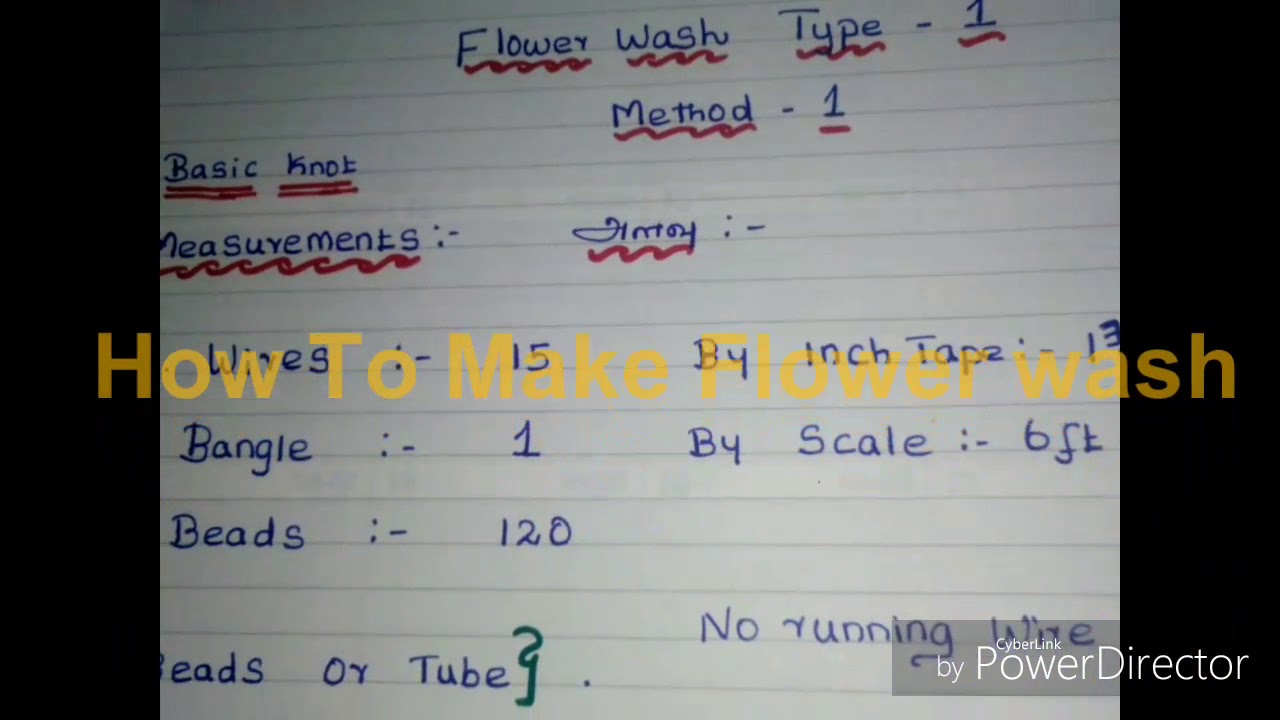 Flower Wash Type - 1
Method - 1
Basic Knot
Measurements :- அளவு :-
Wires :- 15 By Inch Tape :- 13
How To Make Flower wash
Bangle :- 1 By Scale :- 6ft
Beads :- 120
No running Wire
Beads or Tube} .
CyberLink
by PowerDirector